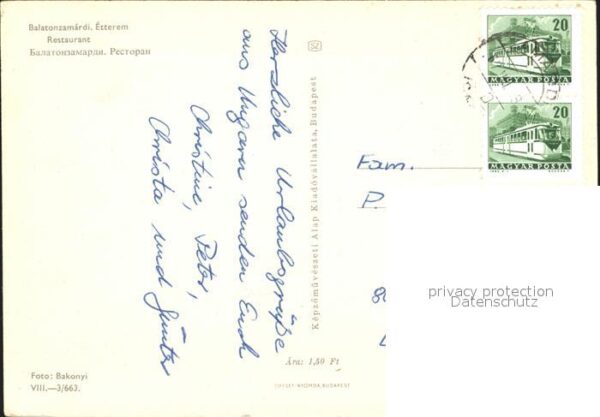 Balatonzamárdi, Étterem
Restaurant
Балатонзамарди. Ресторан
Herzliche Urlaubsgrüße
aus Ungarn senden Euch
Christine, Peter,
Christa und Günter
Képzőművészeti Alap Kiadóvállalata, Budapest
20
MAGYAR POSTA
20
MAGYAR POSTA
Fam.
P.
privacy protection
Datenschutz
Ára: 1,50 Ft
Foto: Bakonyi
VIII.—3/663.
NYOMDA, BUDAPEST